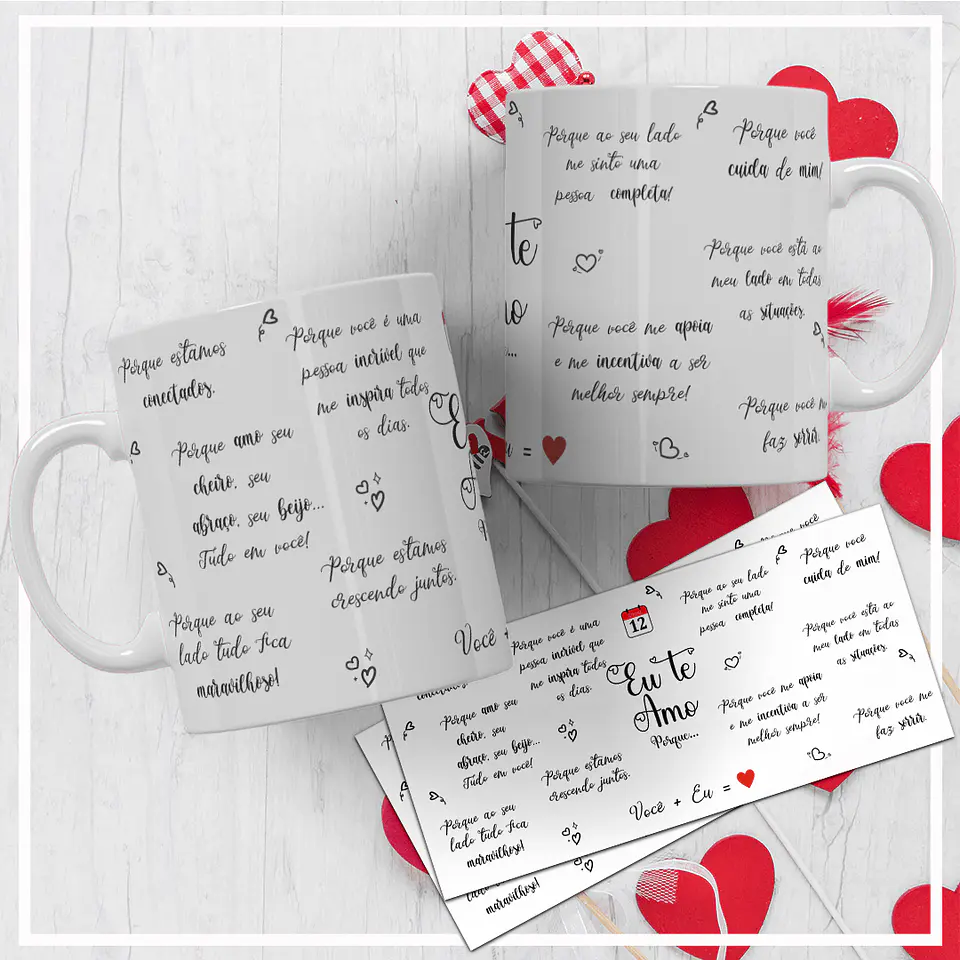 Porque estamos
conectados.
Porque você é uma
pessoa incrível que
me inspira todos
os dias.
Porque amo seu
cheiro, seu
abraço, seu beijo...
Tudo em você!
Porque estamos
crescendo juntos.
Porque ao seu
lado tudo fica
maravilhoso!
Você +
Porque ao seu lado
me sinto uma
pessoa completa!
Porque você
cuida de mim!
te
Porque você está ao
meu lado em todas
as situações.
Porque você me apoia
e me incentiva a ser
melhor sempre!
Porque você m
faz sorrir.
u =
conectados.
Porque você é uma
pessoa incrível que
me inspira todos
os dias.
12
Eu te
Amo
Porque...
Porque ao seu lado
me sinto uma
pessoa completa!
Porque você
cuida de mim!
Porque você está ao
meu lado em todas
as situações.
Porque amo seu
cheiro, seu
abraço, seu beijo...
Tudo em você!
Porque estamos
crescendo juntos.
Porque você me apoia
e me incentiva a ser
melhor sempre!
Porque você me
faz sorrir.
Porque ao seu
lado tudo fica
maravilhoso!
Você + Eu =
maravilhoso!